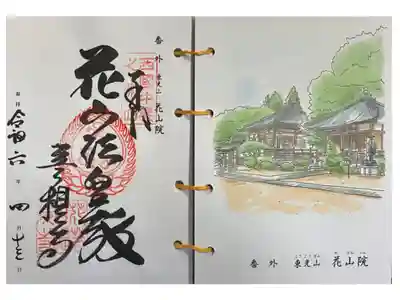 番外 東光山 花山院
奉拝
花山法皇殿
菩提寺
令和六年四月十三日
番外 東光山 花山院